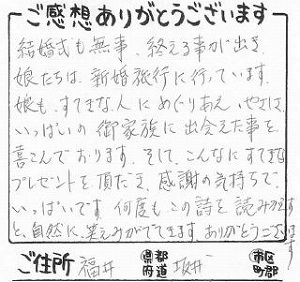 ご感想ありがとうございます
結婚式も無事、終える事が出き、
娘たちは、新婚旅行に行っています。
娘も、すてきな人にめぐりあえ、やさしさ
いっぱいの御家族に出会えた事を
喜こんでおります。そして、こんなにすてきな
プレゼントを頂だき、感謝の気持ちで
いっぱいです。何度もこの詩を読みかえす
と、自然に、笑えみがでてきます。ありがとうございます
ご住所 福井 都道府県 坂井 市区町郡